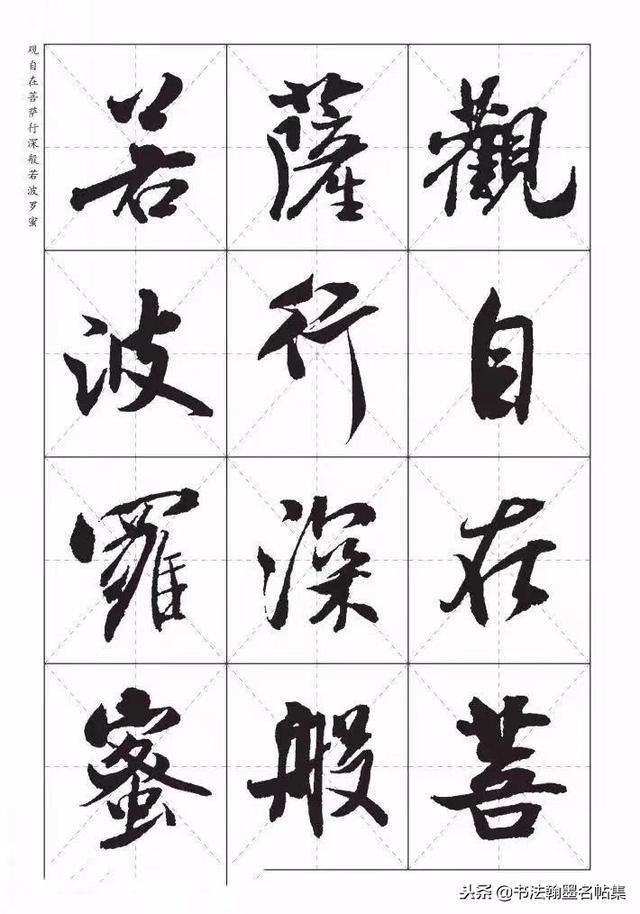 观自在菩萨行深般若波罗蜜
觀自在菩
薩行深般
若波羅蜜
头条@书法翰墨名帖集